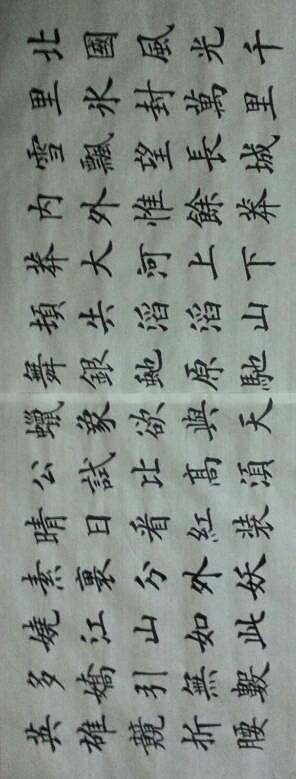 北國風光千
里氷封萬里
雪飄望長城
内外惟餘莽
莽大河上下
頓失滔滔山
舞銀虵原馳
蠟象欲與天
公試比高湏
晴日看紅裝
素裹分外妖
嬈江山如此
多嬌引無數
英雄競折腰